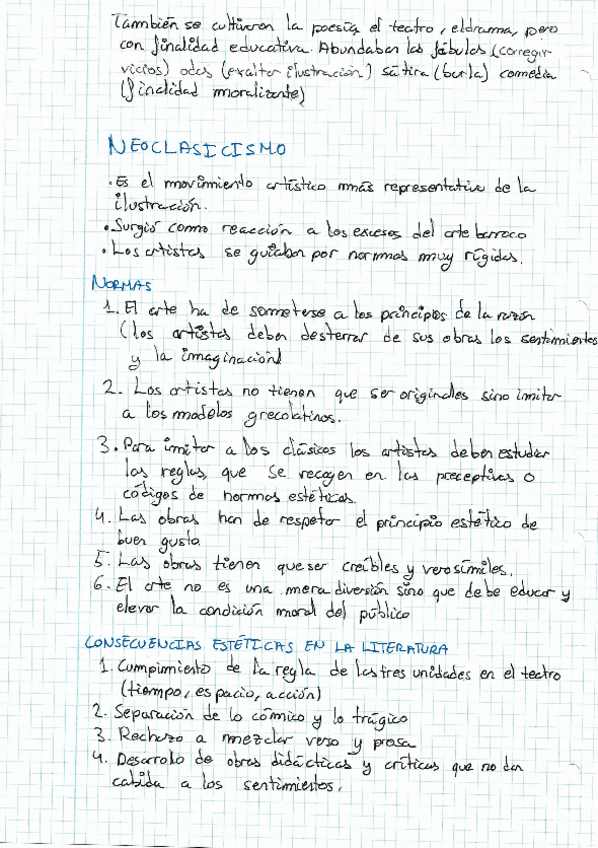 También se cultivaron la poesía, el teatro, el drama, pero
con finalidad educativa. Abundaban las fábulas (corregir
vicios) odas (exaltar ilustración) sátira (burla) comedia
(finalidad moralizante)
NEOCLASICISMO
• Es el movimiento artístico más representativa de la
ilustración.
• Surgió como reacción a los excesos del arte barroco
• Los artistas se guiaban por normas muy rígidas.
NORMAS
1. El arte ha de someterse a los principios de la razón
(los artistas deben desterrar de sus obras los sentimientos
y la imaginación)
2. Los artistas no tienen que ser originales sino imitar
a los modelos grecolatinos.
3. Para imitar a los clásicos los artistas deben estudiar
las reglas, que se recogen en las preceptivas o
códigos de normas estéticas.
4. Las obras han de respetar el principio estético de
buen gusto.
5. Las obras tienen que ser creíbles y verosímiles.
6. El arte no es una mera diversión sino que debe educar y
elevar la condición moral del público
CONSECUENCIAS ESTÉTICAS EN LA LITERATURA
1. Cumpimiento de la regla de las tres unidades en el teatro
(tiempo, espacio, acción)
2. Separación de lo cómico y lo trágico
3. Rechazo a mezclar verso y prosa
4. Desarrollo de obras didácticas y críticas que no dan
cabida a los sentimientos.